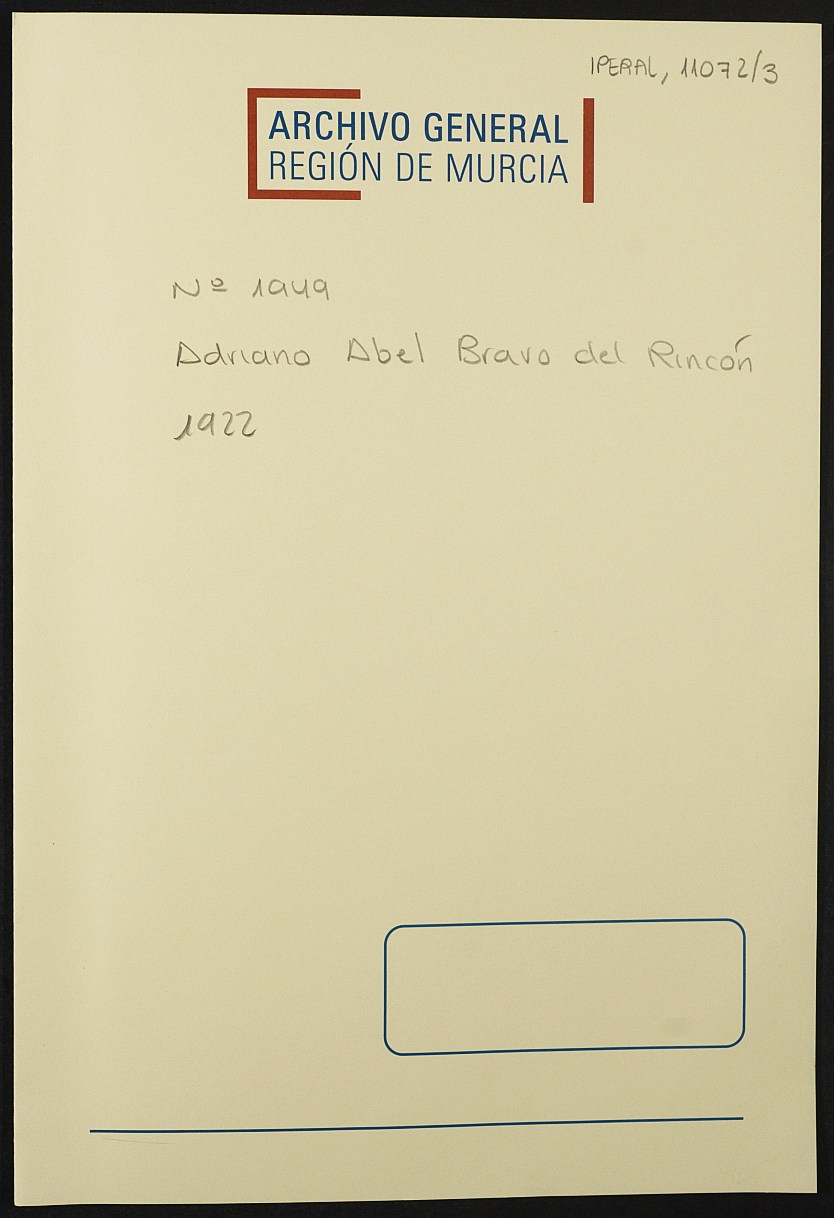 IPERAL, 11072/3
ARCHIVO GENERAL
REGIÓN DE MURCIA
Nº 1949
Adriano Abel Bravo del Rincón
1922